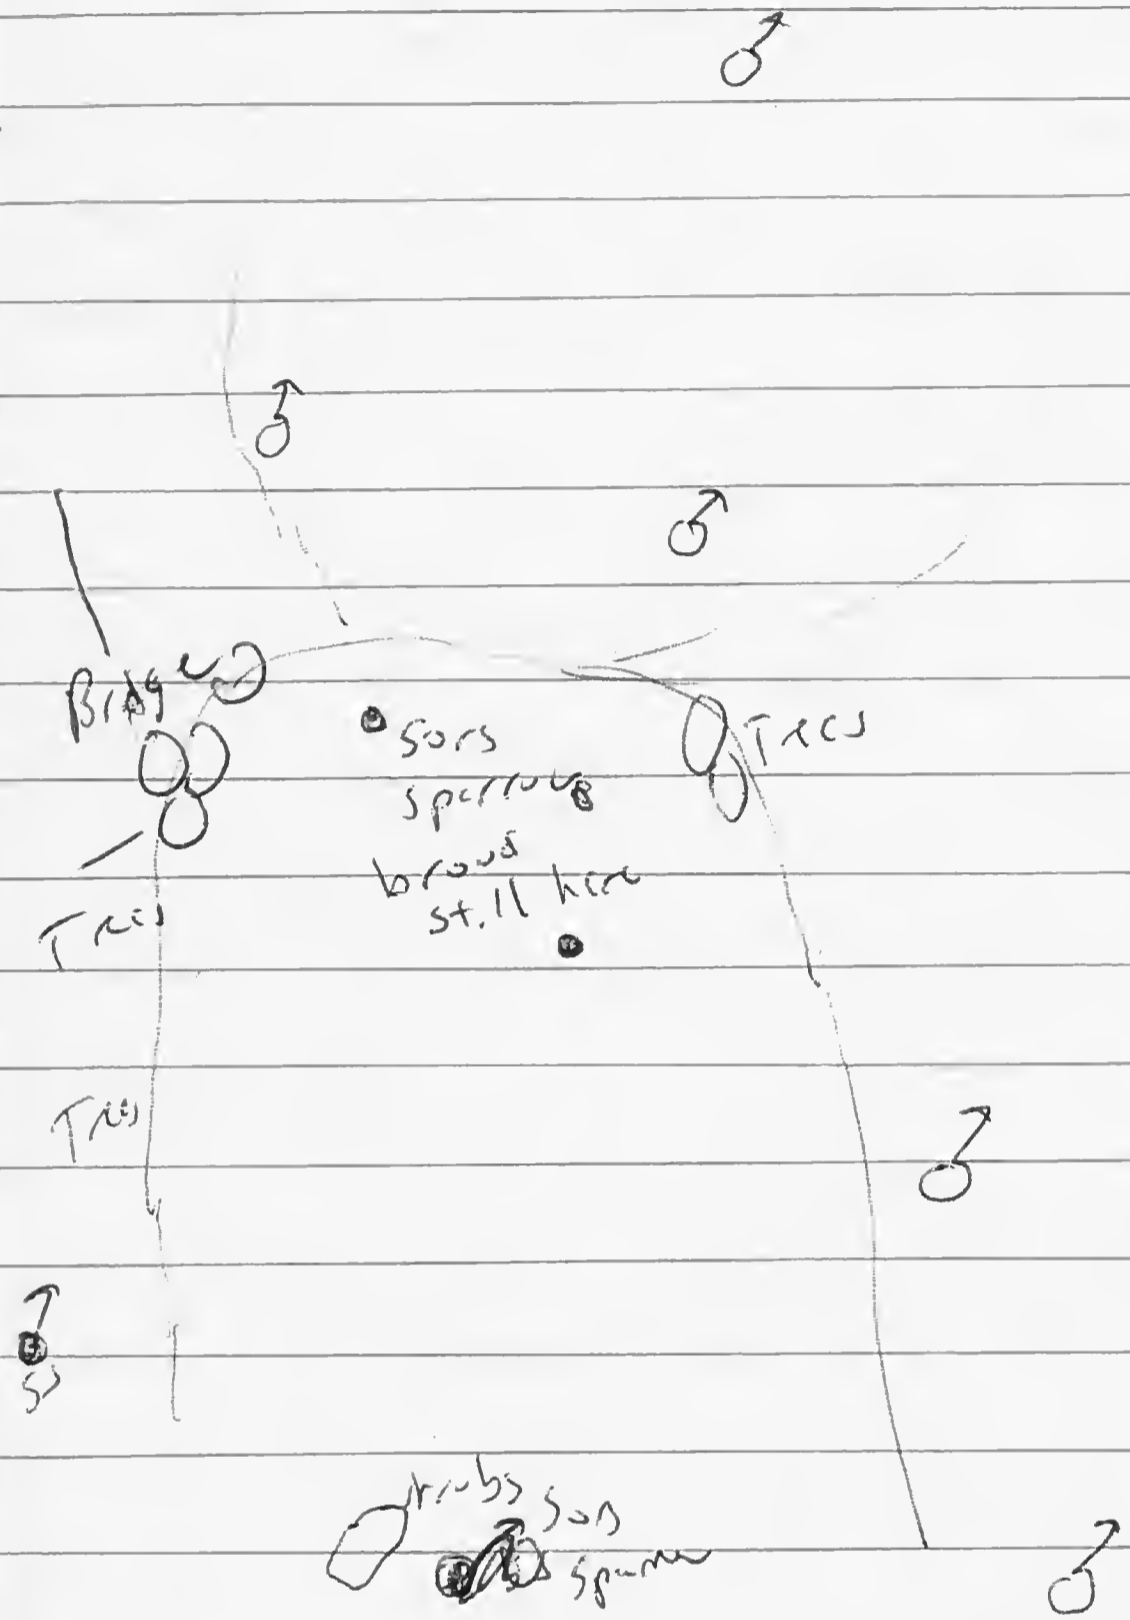 Bridge
Trees
song
sparrows
brood
still here
Trees
Trees
SS
shrubs
song
sparrow